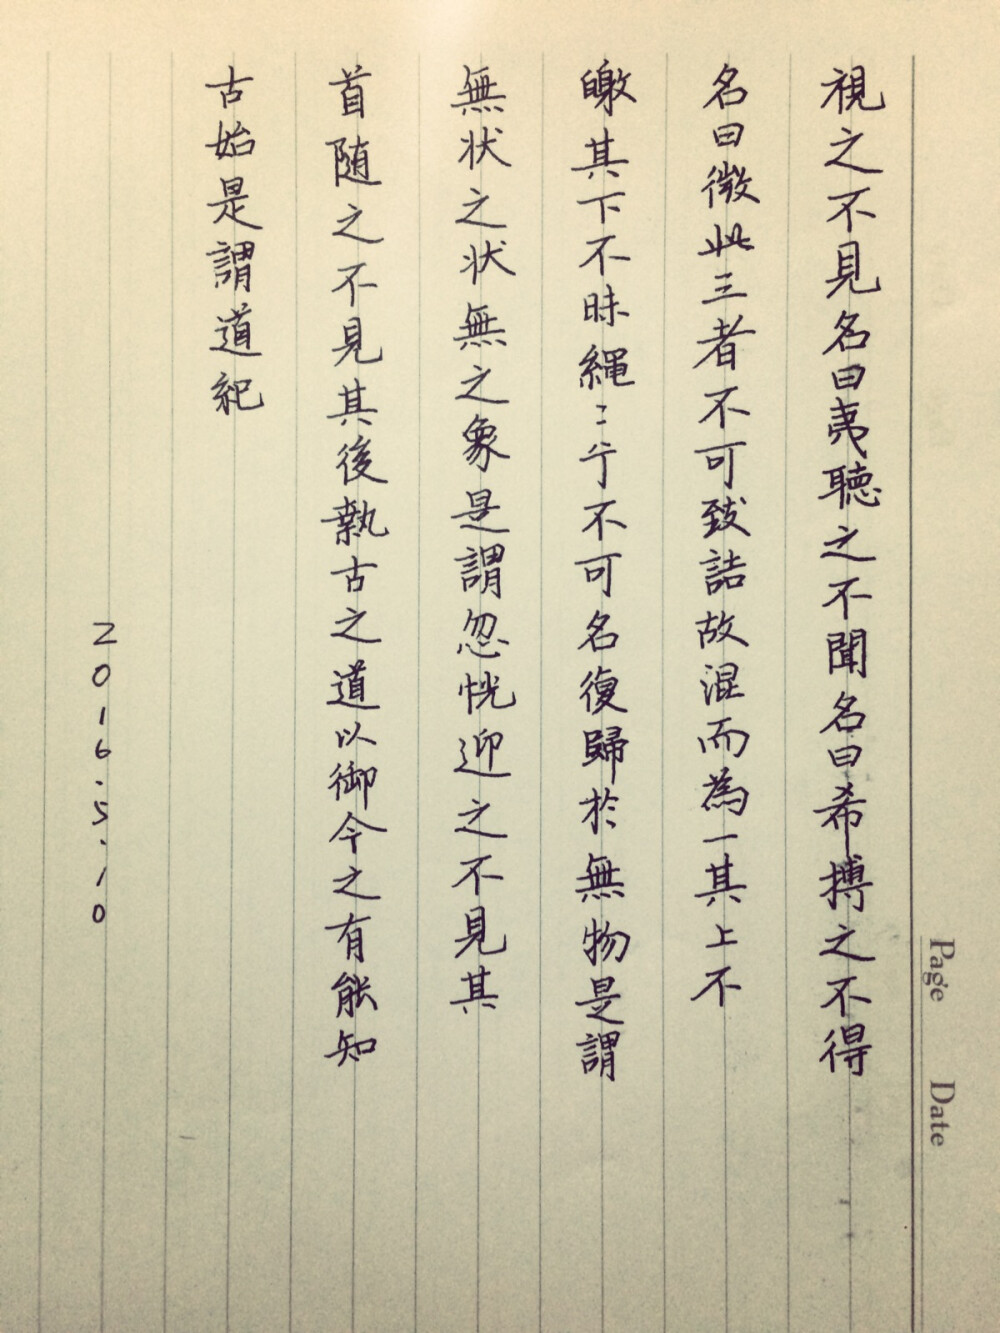 視之不見名曰夷聽之不聞名曰希搏之不得
名曰微此三者不可致詰故混而為一其上不
皦其下不昧繩〻兮不可名復歸於無物是謂
無状之状無之象是謂忽恍迎之不見其
首随之不見其後執古之道以御今之有能知
古始是謂道紀
2016.5.10
Page Date